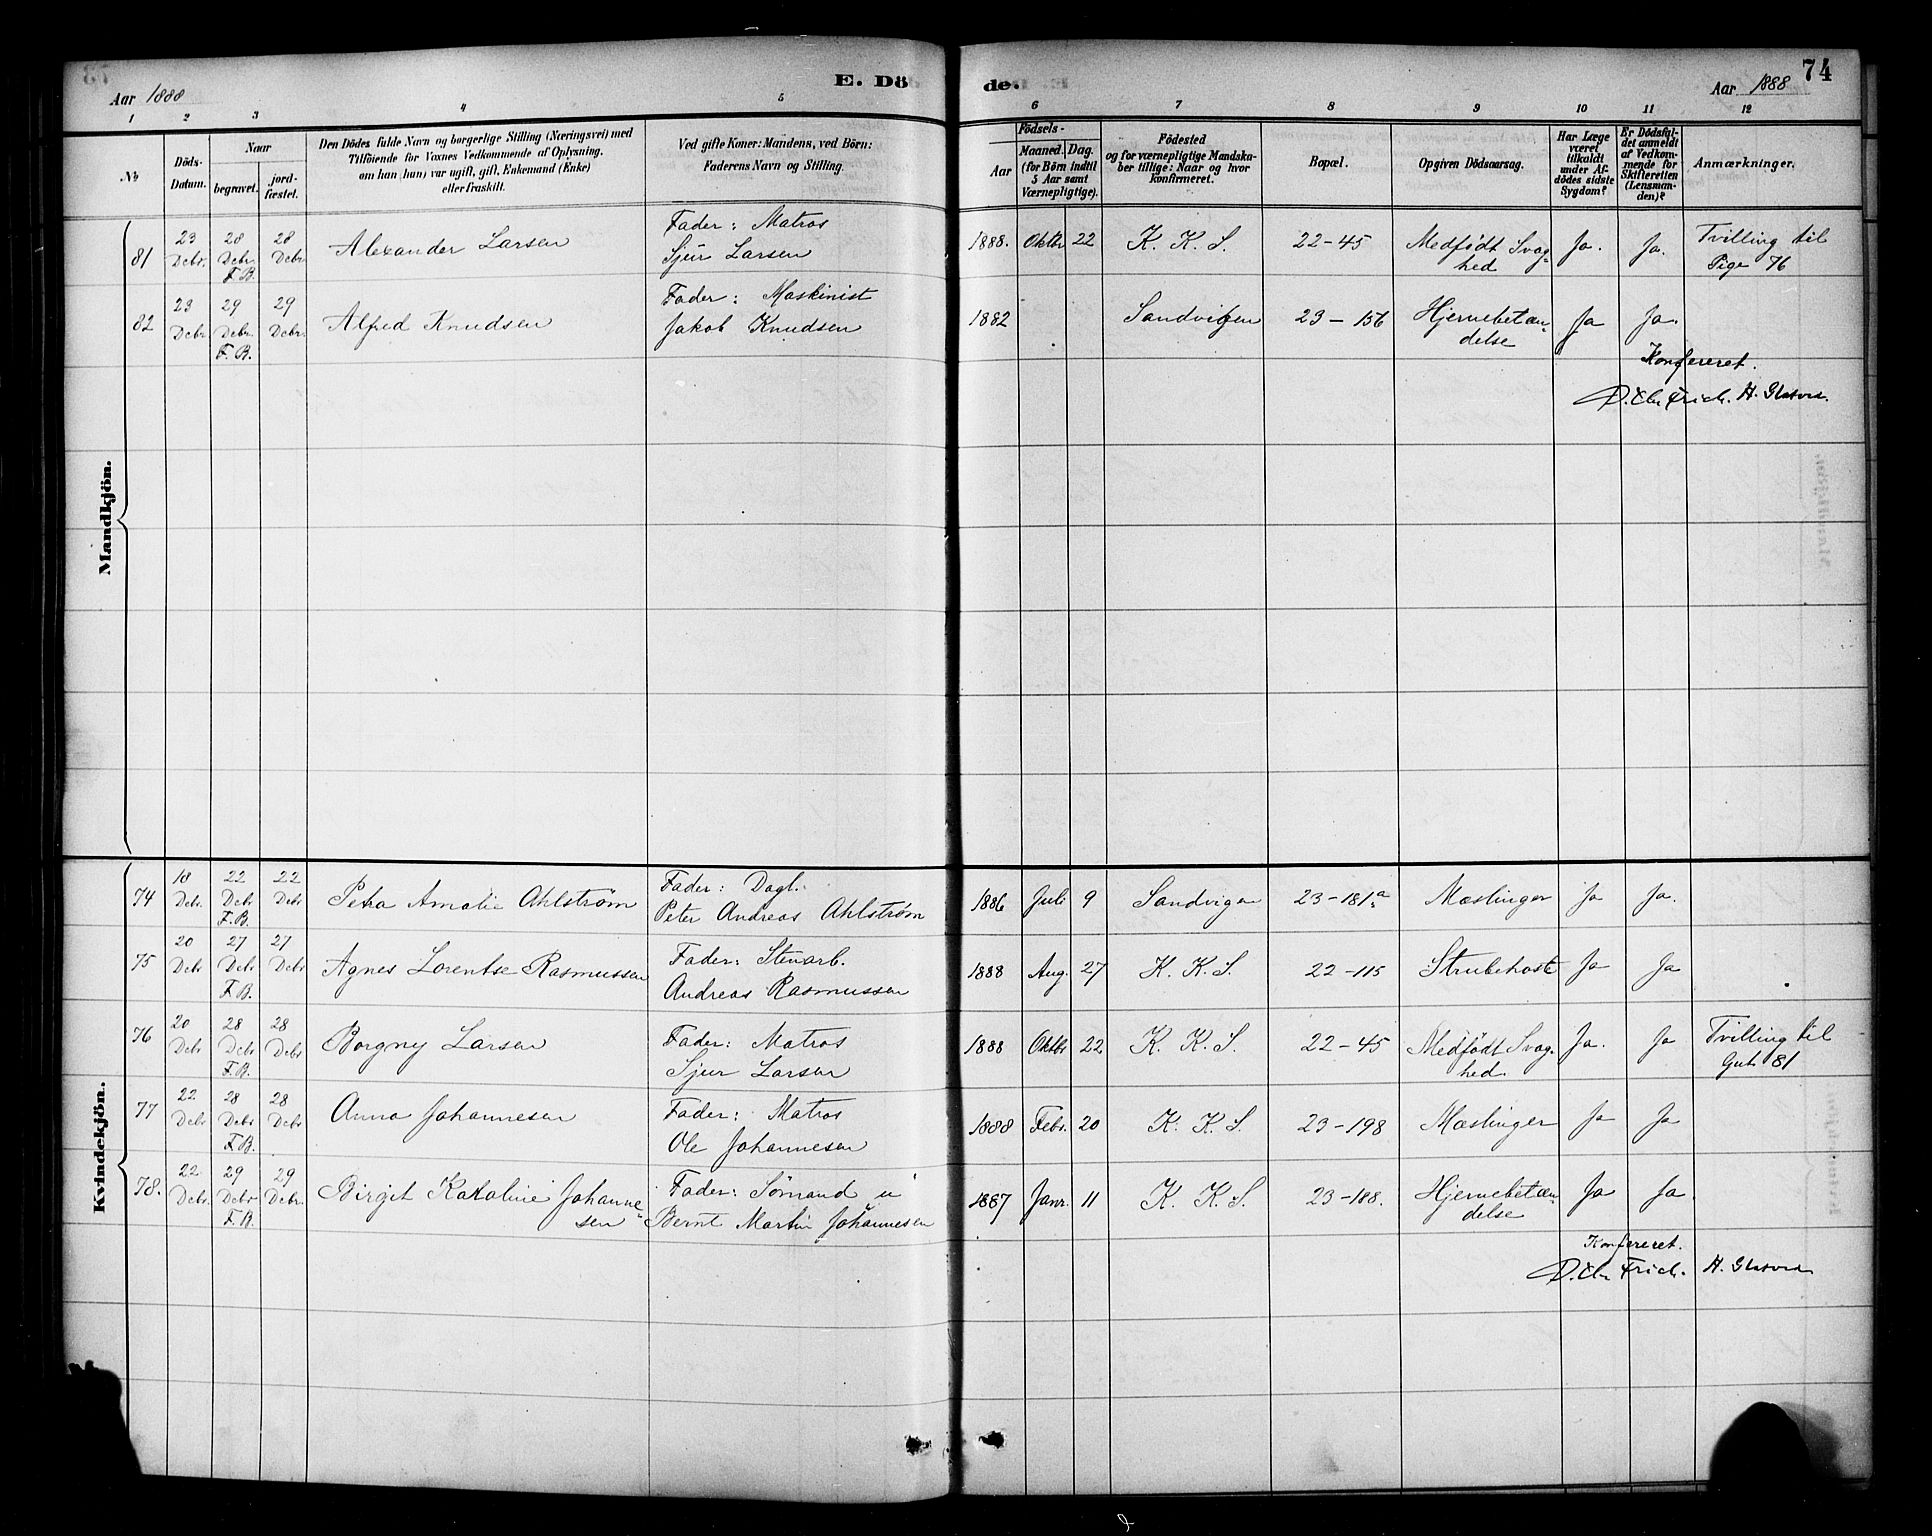 E. Döde.
74
Aar 1888
Aar 1888
1 2 3 4 5 6 7 8 9 10 11 12
No
Döds-Datum.
Naar
begravet.
jordfæstet.
Den Dödes fulde Navn og borgerlige Stilling (Næringsvei) med
Tilföiende for Voxnes Vedkommende af Oplysning,
om han (hun) var ugift, gift, Enkemand (Enke)
eller fraskilt.
Ved gifte Koner: Mandens, ved Börn:
Faderens Navn og Stilling.
Födsels-
Aar
Maaned.
Dag.
(for Børn indtil
5 Aar samt
Værnepligtige).
Födested
og for værnepligtige Mandskaber tillige: Naar og hvor
konfirmeret.
Bopæl.
Opgiven Dödsaarsag.
Har Læge
været
tilkaldt
under Afdödes sidste
Sygdom?
Er Dødsfaldet anmeldt
af Vedkommende for
Skifteretten
(Lensmanden)?
Anmærkninger.
Mandkjön.
81 23 Debr. 28 Debr. F.B. 28 Debr. Alexander Larsen Fader: Matros Sjur Larsen 1888. Oktbr 22 K. K. S. 22-45 Medfödt Svaghed Ja. Ja. Tvilling til Pige 76
82 23 Debr. 29 Debr. F.B. 29 Debr. Alfred Knudsen Fader: Maskinist Jakob Knudsen 1882 Sandvigen 23-156 Hjernebetændelse Ja Ja.
Konfereret.
D. Chr Frich. H.
Kvindekjön.
74 18 Debr. 22 Debr F.B. 22 Debr Petra Amalie Ahlstrøm Fader: Dagl. Peter Andreas Ahlstrøm 1886 Juli 9 Sandvigen 23-181a Mæslinger Ja Ja.
75 20 Debr 27 Debr F.B. 27 Debr Agnes Lorentse Rasmussen Fader: Stenarb. Andreas Rasmussen 1888 Aug. 27 K. K. S. 22-115 Strubehoste Ja Ja
76 20 Debr 28 Debr F.B. 28 Debr Borgny Larsen Fader: Matros Sjur Larsen 1888 Oktbr 22 K. K. S. 22-45 Medfödt Svaghed. Ja. Ja Tvilling til Gut 81
77 22 Debr 28 Debr F.B. 28 Debr Anna Johannesen Fader: Matros Ole Johannesen 1888 Febr. 20 K. K. S. 23-198 Mæslinger Ja Ja
78. 22 Debr. 29 Debr F.B. 29 Debr. Birgit Karoline Johannesen Fader: Sømand Bernt Martin Johannesen 1887 Janr. 11 K. K. S. 23-188. Hjernebetændelse Ja Ja
Konfereret.
D. Chr Frich. H.